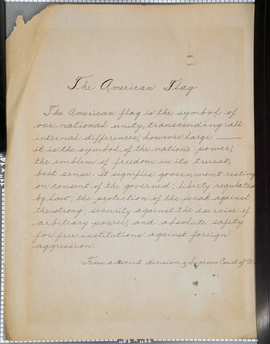 The American Flag
The American flag is the symbol of
our national unity, transcending all
internal differences, however large —
it is the symbol of the nation's power;
the emblem of freedom in its truest,
best sense. it signifies government resting
on consent of the governed; liberty regulated
by law; the protection of the weak against
the strong; security against the exercise of
arbitrary power; and absolute safety
for free institutions against foreign
aggression.
From a recent decision, Supreme Court of